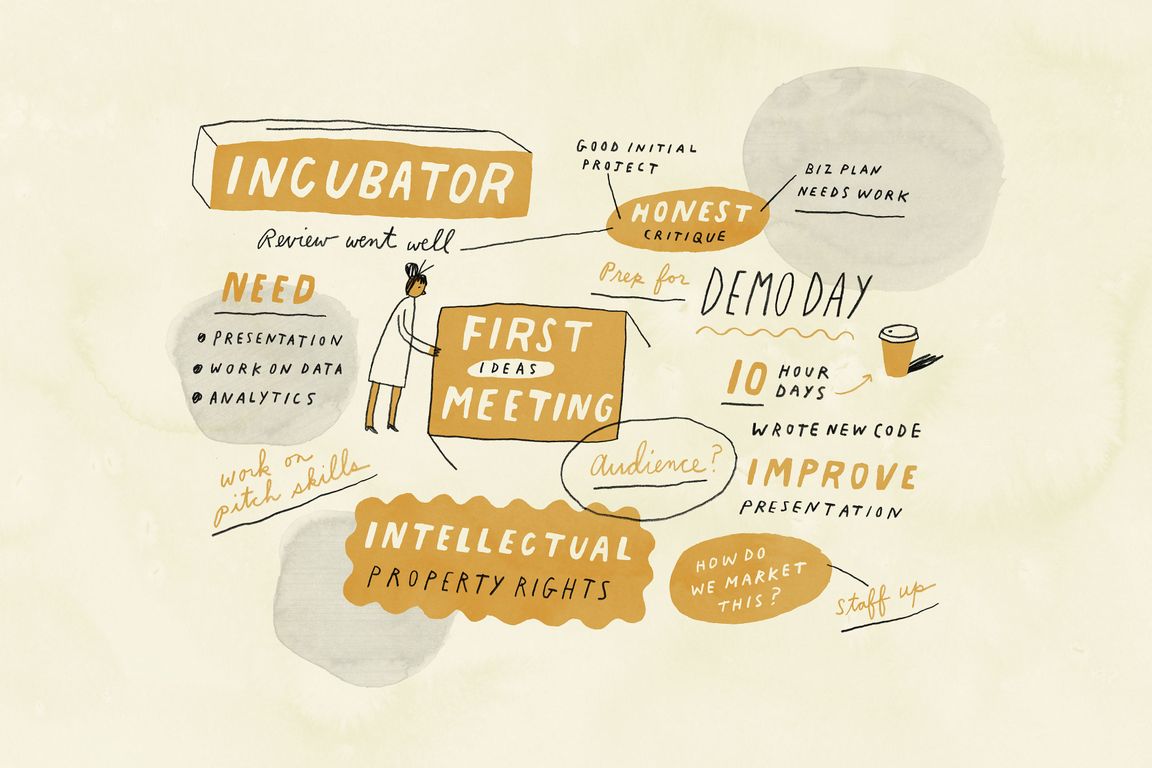 INCUBATOR
Review went well
GOOD INITIAL
PROJECT
HONEST
CRITIQUE
BIZ PLAN
NEEDS WORK
NEED
PRESENTATION
WORK ON DATA
ANALYTICS
work on
pitch skills
FIRST
IDEAS
MEETING
Prep for
DEMO DAY
10 HOUR
DAYS
WROTE NEW CODE
audience?
IMPROVE
PRESENTATION
INTELLECTUAL
PROPERTY RIGHTS
HOW DO
WE MARKET
THIS?
Staff up